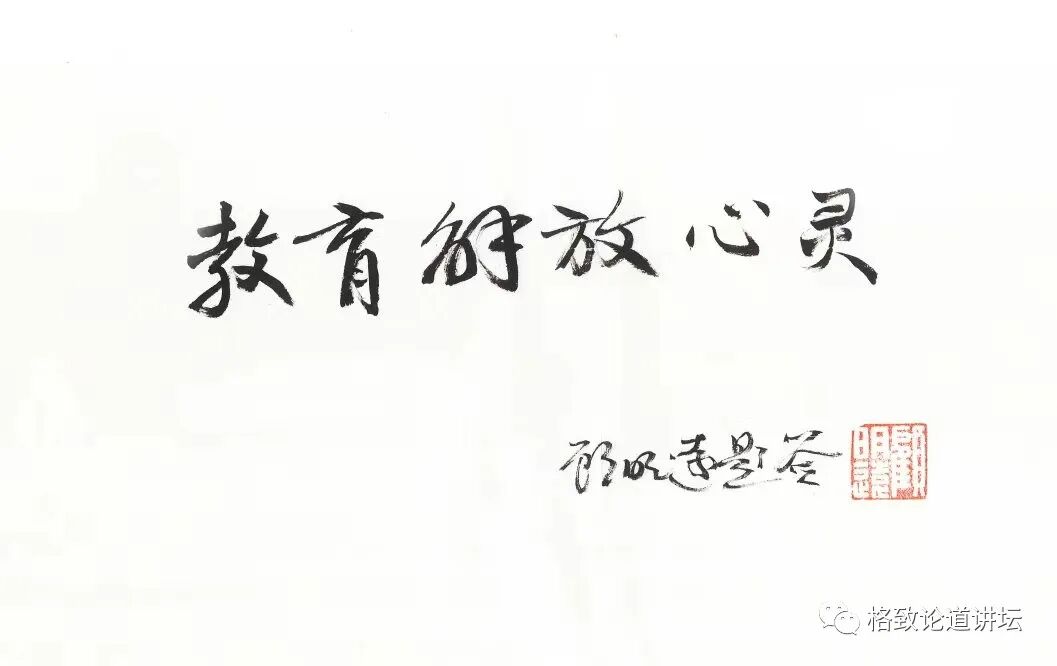 教育解放心灵
顾明远题签
顧明远
格致论道讲坛